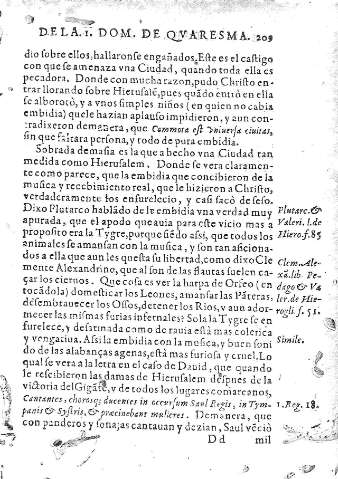 DE LA 1. DOM. DE QVARESMA. 209
dio sobre ellos, hallaronse engañados. Este es el castigo
con que se amenaza vna Ciudad, quando toda ella es
pecadora. Donde con mucha razon, pudo Christo en
trar llorando sobre Hierusalē, pues quādo entrò en ella
se alborotò, y a vnos simples niños (en quien no cabia
embidia) que le hazian applauso impidieron, y aun con
tradixeron demanera, que Commota est vniuersa ciuitas,
sin que faltara persona, y todo de pura embidia.
Sobrada demasia es la que a hecho vna Ciudad tan
medida como Hierusalem. Donde se vera claramen-
te como parece, que la embidia que concibieron de la
musica y recebimiento real, que le hizieron a Christo,
verdaderamente los enfurelecio, y casi sacò de seso.
Dixo Plutarco hablādo de le embidia vna verdad muy
apurada, que el apodo que auia para este vicio mas a
proposito era la Tygre, porque siēdo assi, que todos los
animales se amansan con la musica, y son tan aficiona-
dos a ella que aun les questa su libertad, como dixo Cle
mente Alexandrino, que al son de las flautas suelen ca-
çar los ciernos. Que cosa es ver la harpa de Orfeo (en
tocādola) domesticar los Leones, amansar las Pāteras,
desembrauecer los Ossos, detener los Rios, y aun ador-
mecer las mismas furias infernales? Sola la Tygre se en
furelece, y desatinada como de rauia està mas colerica
y vengatiua. Assi la embidia con la mesica, y buen soni
do de las alabanças agenas, està mas furiosa y cruel. Lo
qual se vera a la letra en el caso de Dauid, que quando
le rescibieron las damas de Hierusalem despues de la
victoria del Gigāte, y de todos los lugares comarcanos,
Cantantes, chorosq; ducentes in occursum Saul Regis, in Tym-
panis & Systris, & præcinebant mulieres. Demanera, que
con panderos y sonajas cantauan y dezian, Saul vēciò
Dd mil
Plutarc. &
Valeri. de
Hiero. f. 85
Clem. Ale-
xā. lib. Pe-
dago & Va
ler. de Hie-
rogli f. 51.
Simile.
1. Reg. 18.